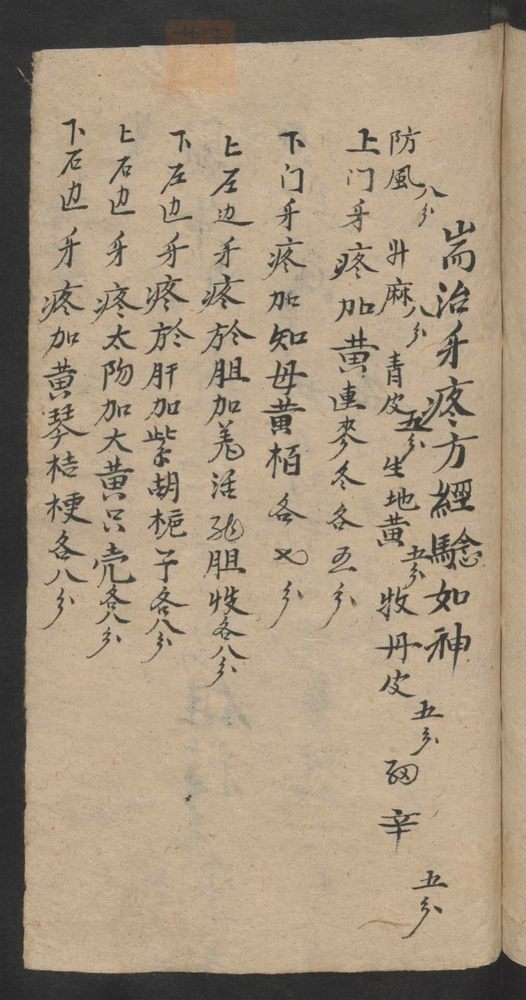 耑治牙疼方經驗如神
防風八分 升麻八分 青皮五分 生地黃五分 牧丹皮五分 細辛五分
上门牙疼加黄連麥冬各五分
下门牙疼加知母黄栢各七分
上左边牙疼於胆加羗活龍胆草各八分
下左边牙疼於肝加柴胡梔子各八分
上右边牙疼太阳加大黄只壳各八分
下右边牙疼加黄琴桔梗各八分